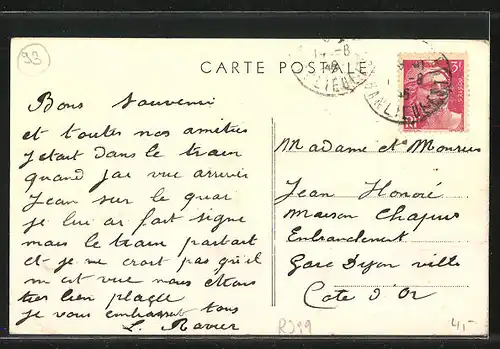 93
CARTE POSTALE
3F
Bons Souvenir
et toutes nos amities
J etait dans le train
quand jai vue arriver
Jean sur le quai
je lui ai fait signe
mais le train partait
et je ne croit pas qu'il
m et vue nous étions
tres bien placée
je vous embrasse tous
L. Ravier
Madame et Monsieur
Jean Honoré
Maison Chapuis
Entranchement
Gare Dijon ville
Cote d'Or
4,-